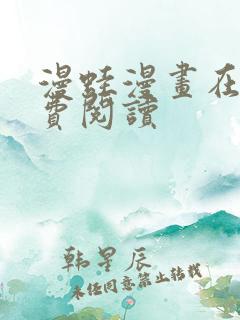 漫蛙漫畫在
費閱讀
韩星辰
未经同意禁止转载